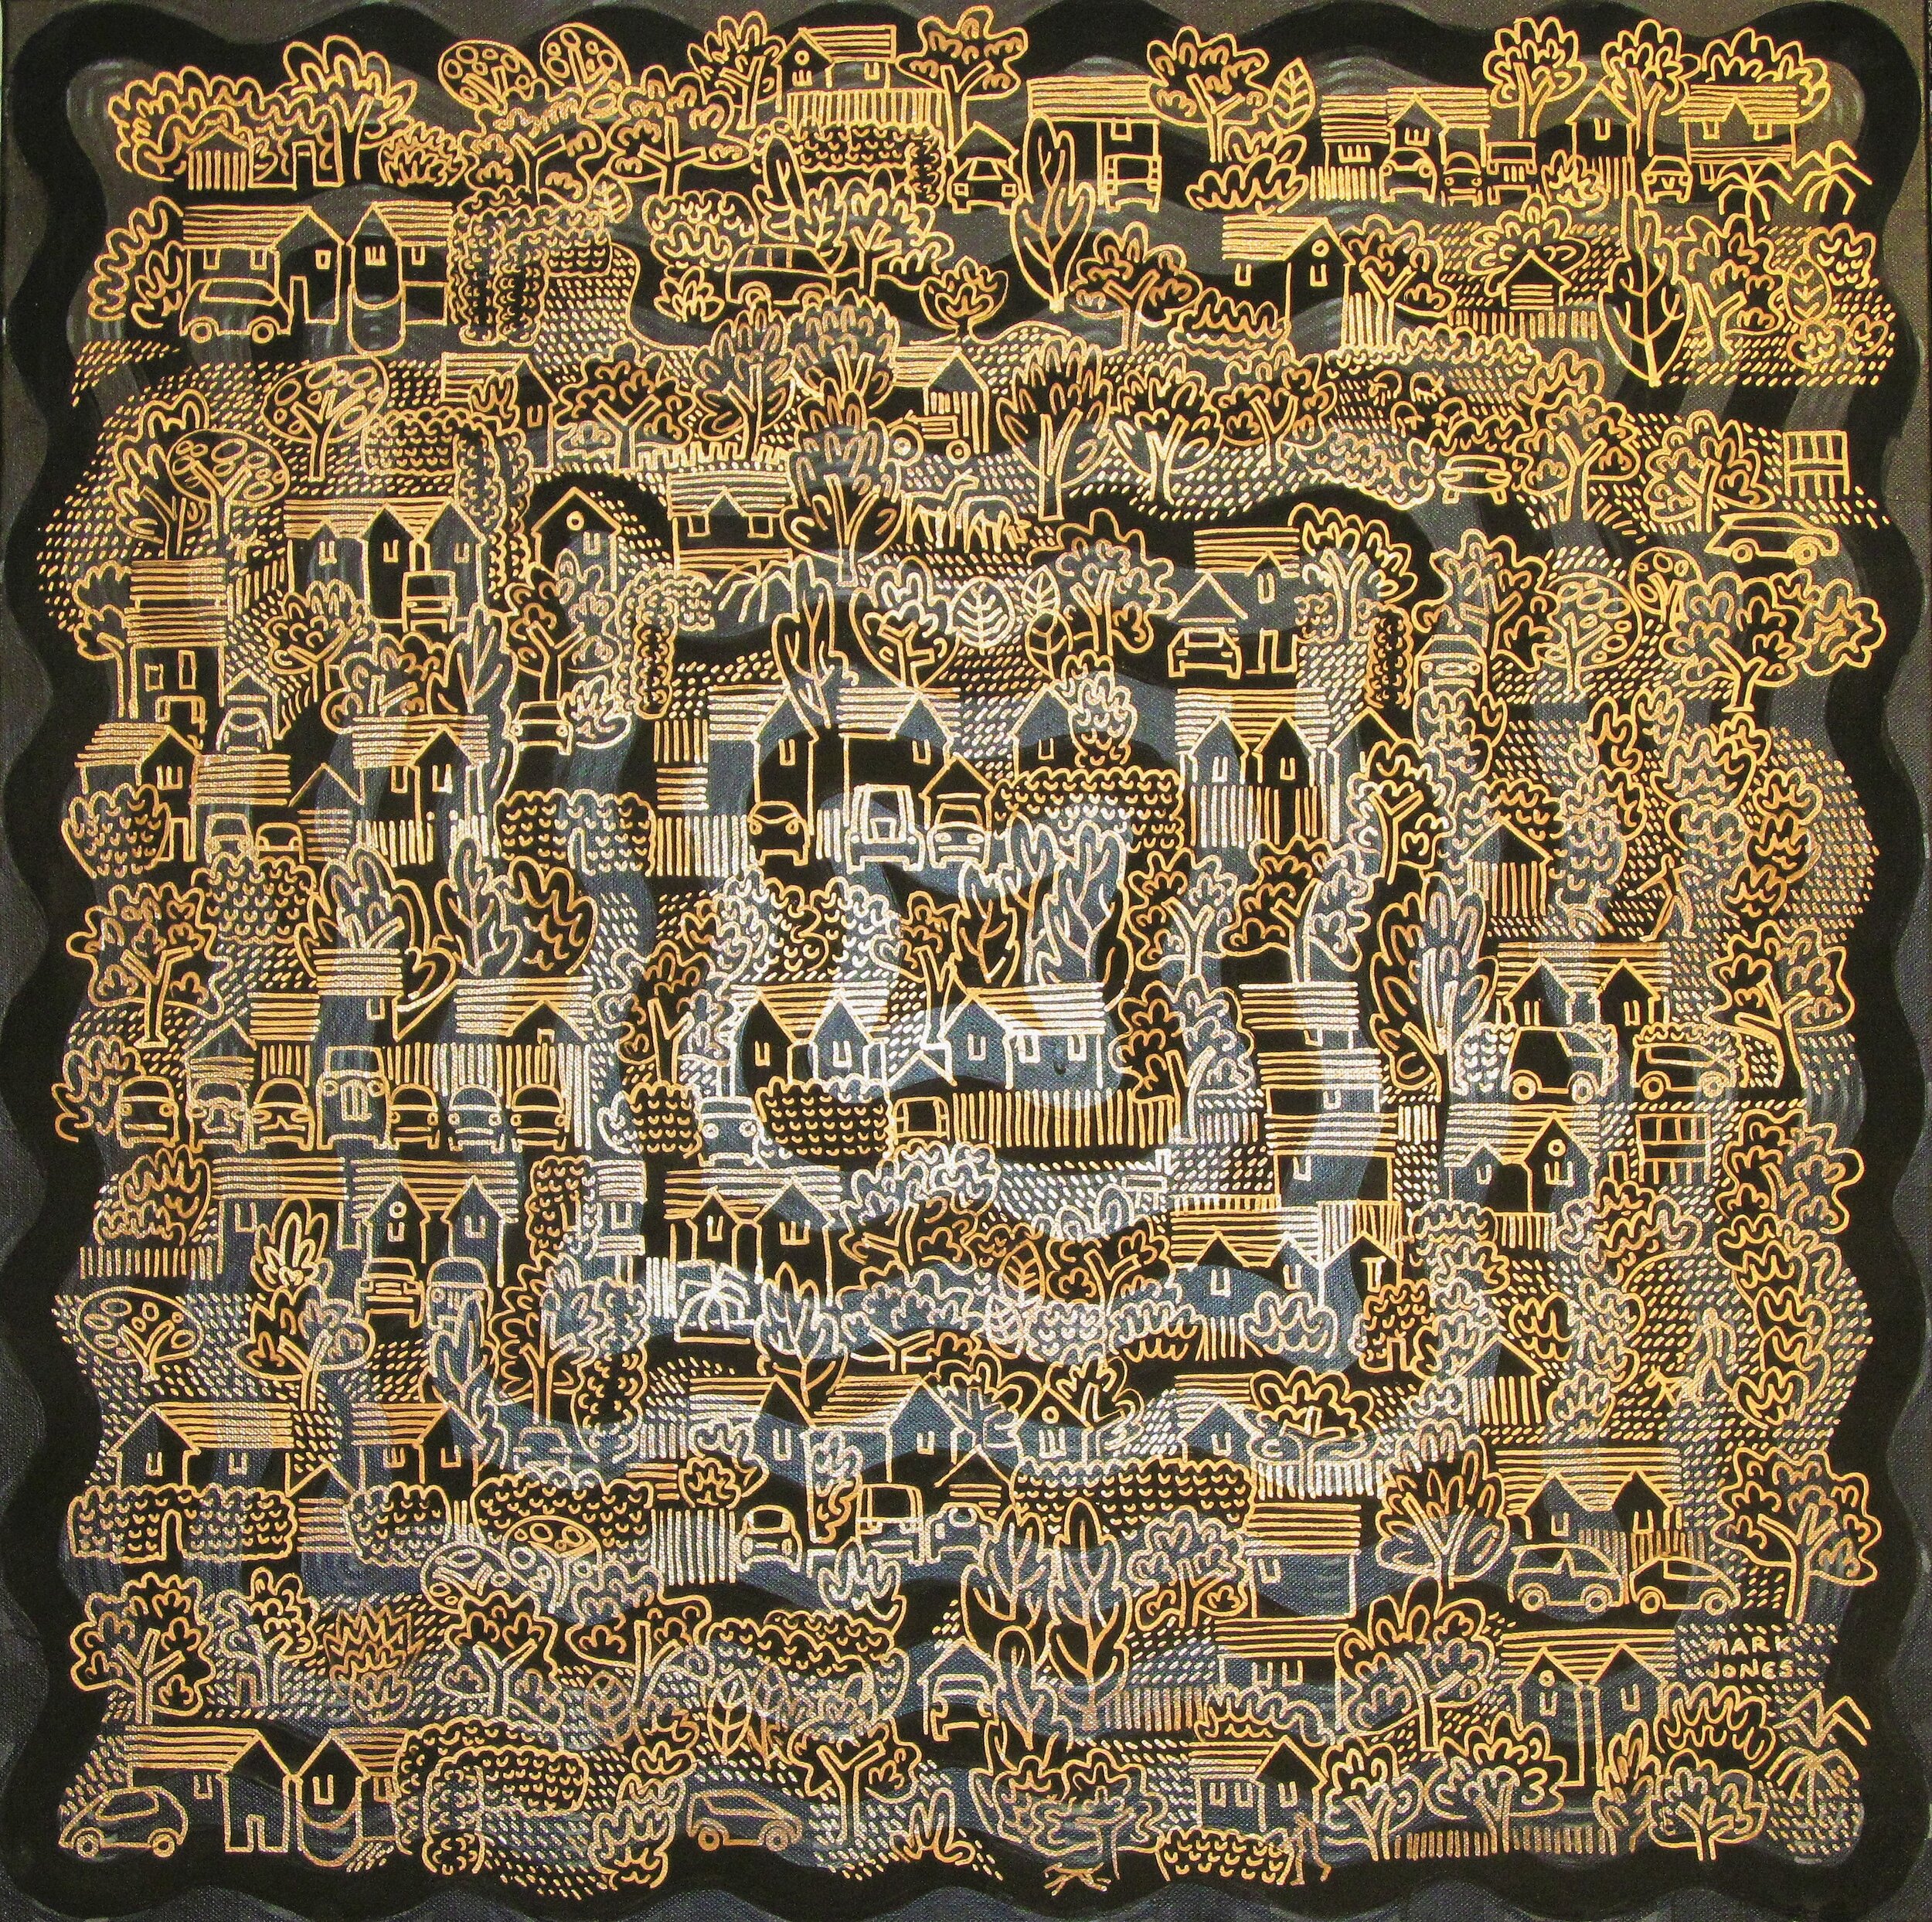 MARK
JONES